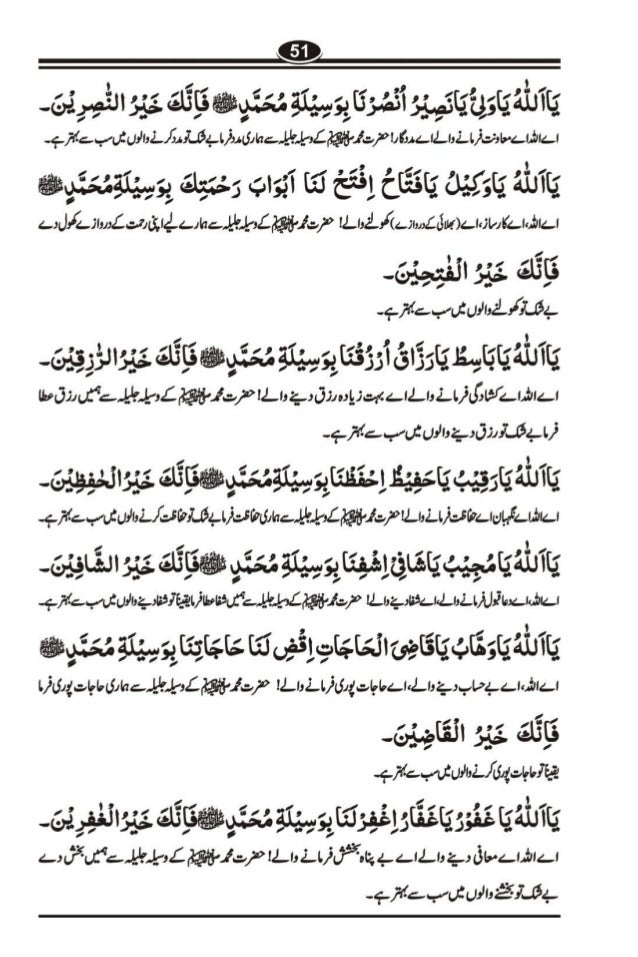 51
يَا اَللّٰهُ يَا وَلِيُّ يَا نَصِيْرُ اُنْصُرْنَا بِوَسِيْلَةِ مُحَمَّدٍ ﷺ فَاِنَّكَ خَيْرُ النّٰصِرِيْنَ۔
اے اللہ اے معاونت فرمانے والے اے مددگار! حضرت محمد ﷺ کے وسیلہ جلیلہ سے ہماری مدد فرما بے شک تو مدد کرنے والوں میں سب سے بہتر ہے۔
يَا اَللّٰهُ يَا وَكِيْلُ يَا فَتَّاحُ اِفْتَحْ لَنَا اَبْوَابَ رَحْمَتِكَ بِوَسِيْلَةِ مُحَمَّدٍ ﷺ
اے اللہ، اے کارساز، اے (بھلائی کے دروازے) کھولنے والے! حضرت محمد ﷺ کے وسیلہ جلیلہ سے ہمارے لیے اپنی رحمت کے دروازے کھول دے
فَاِنَّكَ خَيْرُ الْفٰتِحِيْنَ۔
بے شک تو کھولنے والوں میں سب سے بہتر ہے۔
يَا اَللّٰهُ يَا بَاسِطُ يَا رَزَّاقُ اُرْزُقْنَا بِوَسِيْلَةِ مُحَمَّدٍ ﷺ فَاِنَّكَ خَيْرُ الرّٰزِقِيْنَ۔
اے اللہ اے کشادگی فرمانے والے اے بہت زیادہ رزق دینے والے! حضرت محمد ﷺ کے وسیلہ جلیلہ سے ہمیں رزق عطا
فرما بے شک تو رزق دینے والوں میں سب سے بہتر ہے۔
يَا اَللّٰهُ يَا رَقِيْبُ يَا حَفِيْظُ اِحْفَظْنَا بِوَسِيْلَةِ مُحَمَّدٍ ﷺ فَاِنَّكَ خَيْرُ الْحٰفِظِيْنَ۔
اے اللہ اے نگہبان اے حفاظت فرمانے والے! حضرت محمد ﷺ کے وسیلہ جلیلہ سے ہماری حفاظت فرما بے شک تو حفاظت کرنے والوں میں سب سے بہتر ہے۔
يَا اَللّٰهُ يَا مُجِيْبُ يَا شَافِيْ اِشْفِنَا بِوَسِيْلَةِ مُحَمَّدٍ ﷺ فَاِنَّكَ خَيْرُ الشَّافِيْنَ۔
اے اللہ، اے دعا قبول فرمانے والے، اے شفا دینے والے! حضرت محمد ﷺ کے وسیلہ جلیلہ سے ہمیں شفا عطا فرما یقیناً تو شفا دینے والوں میں سب سے بہتر ہے۔
يَا اَللّٰهُ يَا وَهَّابُ يَا قَاضِيَ الْحَاجَاتِ اِقْضِ لَنَا حَاجَاتِنَا بِوَسِيْلَةِ مُحَمَّدٍ ﷺ
اے اللہ، اے بے حساب دینے والے، اے حاجات پوری فرمانے والے! حضرت محمد ﷺ کے وسیلہ جلیلہ سے ہماری حاجات پوری فرما
فَاِنَّكَ خَيْرُ الْقَاضِيْنَ۔
یقیناً تو حاجات پوری کرنے والوں میں سب سے بہتر ہے۔
يَا اَللّٰهُ يَا غَفُوْرُ يَا غَفَّارُ اِغْفِرْ لَنَا بِوَسِيْلَةِ مُحَمَّدٍ ﷺ فَاِنَّكَ خَيْرُ الْغٰفِرِيْنَ۔
اے اللہ اے معافی دینے والے اے بے پناہ بخشش فرمانے والے! حضرت محمد ﷺ کے وسیلہ جلیلہ سے ہمیں بخش دے
بے شک تو بخشنے والوں میں سب سے بہتر ہے۔